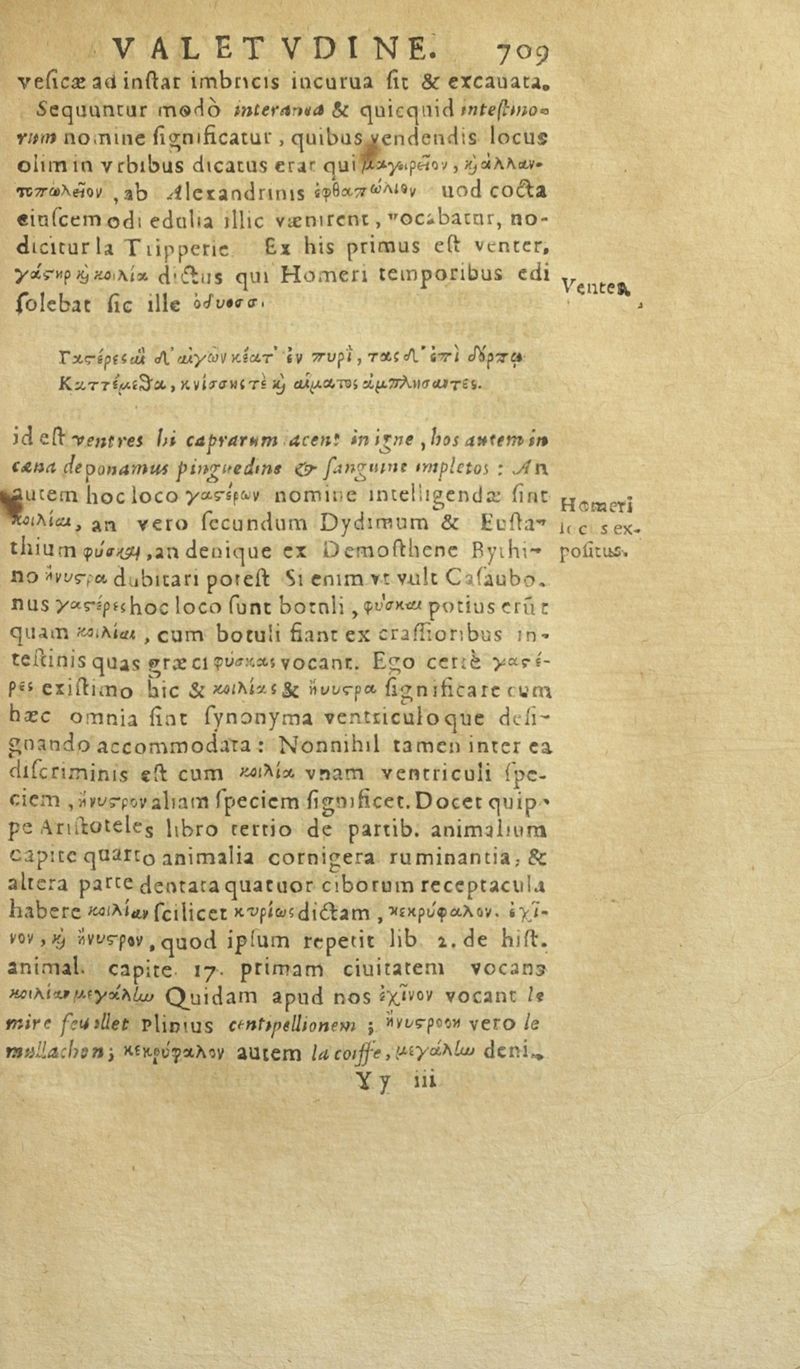 VALETVDINE. 709
veſicæ ad inſtar imbricis incurua ſit & excauata.
Sequuntur modò interanea & quicquid inteſtino-
rum nomine ſignificatur, quibus vendendis locus
olim in vrbibus dicatus erat qui μαγειρεῖον, καὶ ἀλλαν-
τοπωλεῖον, ab Alexandrinis ἑφθοπώλιον uod cocta
eiuſcemodi edulia illic vænirent, vocabatur, no-
dicitur la Tripperie Ex his primus eſt venter,
γάςηρ καὶ κοιλία dictus qui Homeri temporibus edi
Ventes
ſolebat ſic ille ὀδυσσ.
Γαςέρες αἱ δ' αἰγῶν κέατ' ἐν πυρὶ, τὰς δ' ἐπὶ δόρπῳ
Καττέμεθα, κνίσσης τὲ καὶ αἵματος ἀμπλήσαντες.
id eſt ventres hi caprarum acent in igne, hos autem in
cæna deponamus pinguedine & ſanguine impletos: An
autem hoc loco γαςέρων nomine intelligendæ ſint
Homeri
κοιλίαι, an vero ſecundum Dydimum & Euſta-
s ex-
thium φύσκη, an denique ex Demoſthene Bythi-
poſitus.
no ἤνυςρα dubitari poteſt Si enim vt vult Caſaubo.
nus γαςέρες hoc loco ſunt botuli, φύσκαι potius erūt
quam κοιλίαι, cum botuli fiant ex craſſioribus in-
teſtinis quas græci φύσκας vocant. Ego certè γαςέ-
ρες exiſtimo hic & κοιλίας & ἤνυςρα ſignificare cum
hæc omnia ſint ſynonyma ventriculoque deſi-
gnando accommodata: Nonnihil tamen inter ea
diſcriminis eſt cum κοιλία vnam ventriculi ſpe-
ciem, ἤνυςρον aliam ſpeciem ſignificet. Docet quip-
pe Ariſtoteles libro tertio de partib. animalium
capite quarto animalia cornigera ruminantia, &
altera parte dentata quatuor ciborum receptacula
habere κοιλίαν ſcilicet κυρίως dictam, κεκρύφαλον. ἐχῖ-
νον, καὶ ἤνυςρον, quod ipſum repetit lib 2. de hiſt.
animal. capite 17. primam ciuitatem vocans
κοιλίαν μεγάλην Quidam apud nos ἐχῖνον vocant le
mire feuillet Plinius centipellionem; ἤνυςροον vero le
mullachon; κεκρύφαλον autem la coiffe, μεγάλην deni-
Yy iii